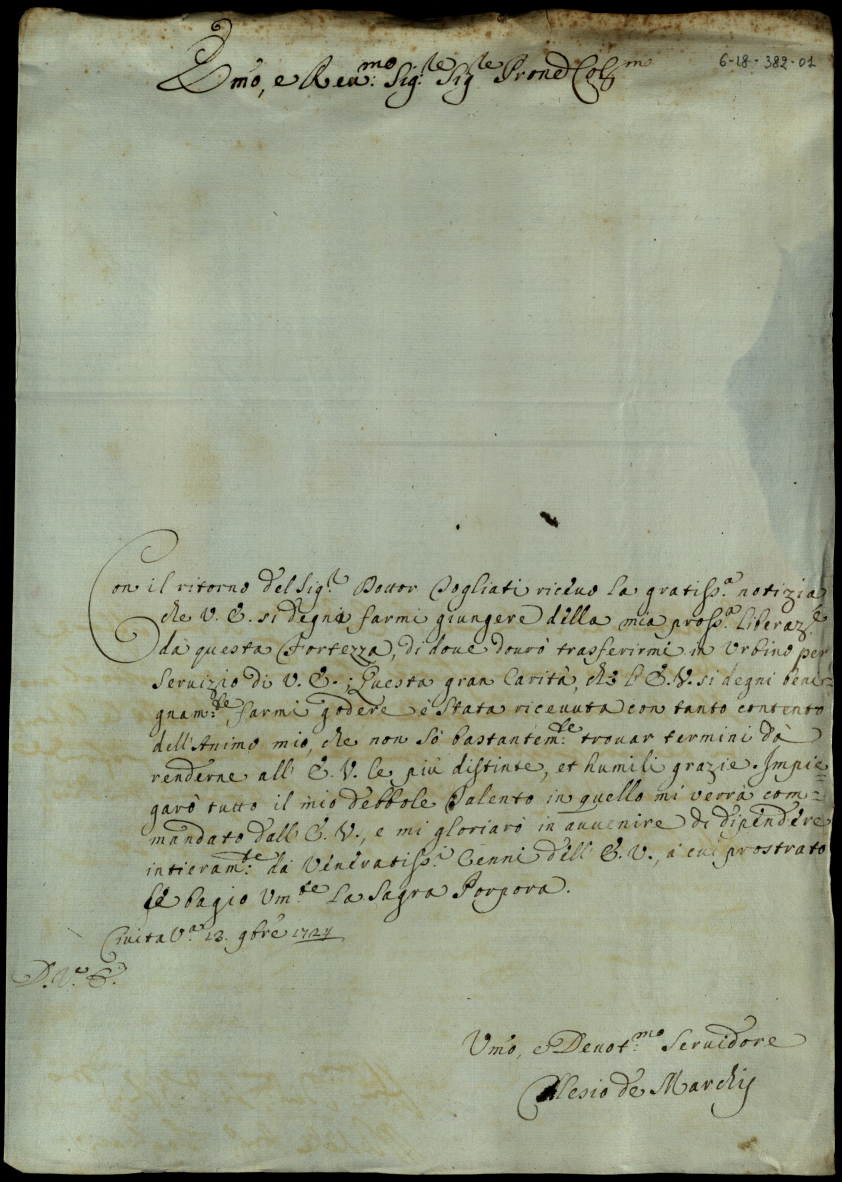 6-18-382-01
Emo, e Reu.mo Sig.re Sig.re Prone Col.mo
Con il ritorno del Sig.r Dottor Pogliati riceuo la gratiss.a notizia
che V. E. si degna farmi giungere della mia pross.a liberaz.e
da questa Fortezza, di doue dourò trasferirmi in Vrbino per
Seruizio di V. E.; Questa gran Carità, che l'E.V. si degni beni=
gnam.te farmi godere è Stata riceuuta con tanto contento
dell'Animo mio, che non sò bastantem.te trouar termini da
renderne all'E. V. le più distinte, et humili grazie. Impie=
garò tutto il mio debbole Talento in quello mi verrà com=
mandato dall'E. V., e mi gloriarò in auuenire di dipendere
intieram.te da Veneratiss.i Cenni dell'E. V., a cui prostrato
le bagio Vm.te La Sagra Porpora.
Ciuita V.a 12. 9bre 1727
D. V.a E.
Vmo, e Deuot.mo Seruidore
Alesio de Marchis